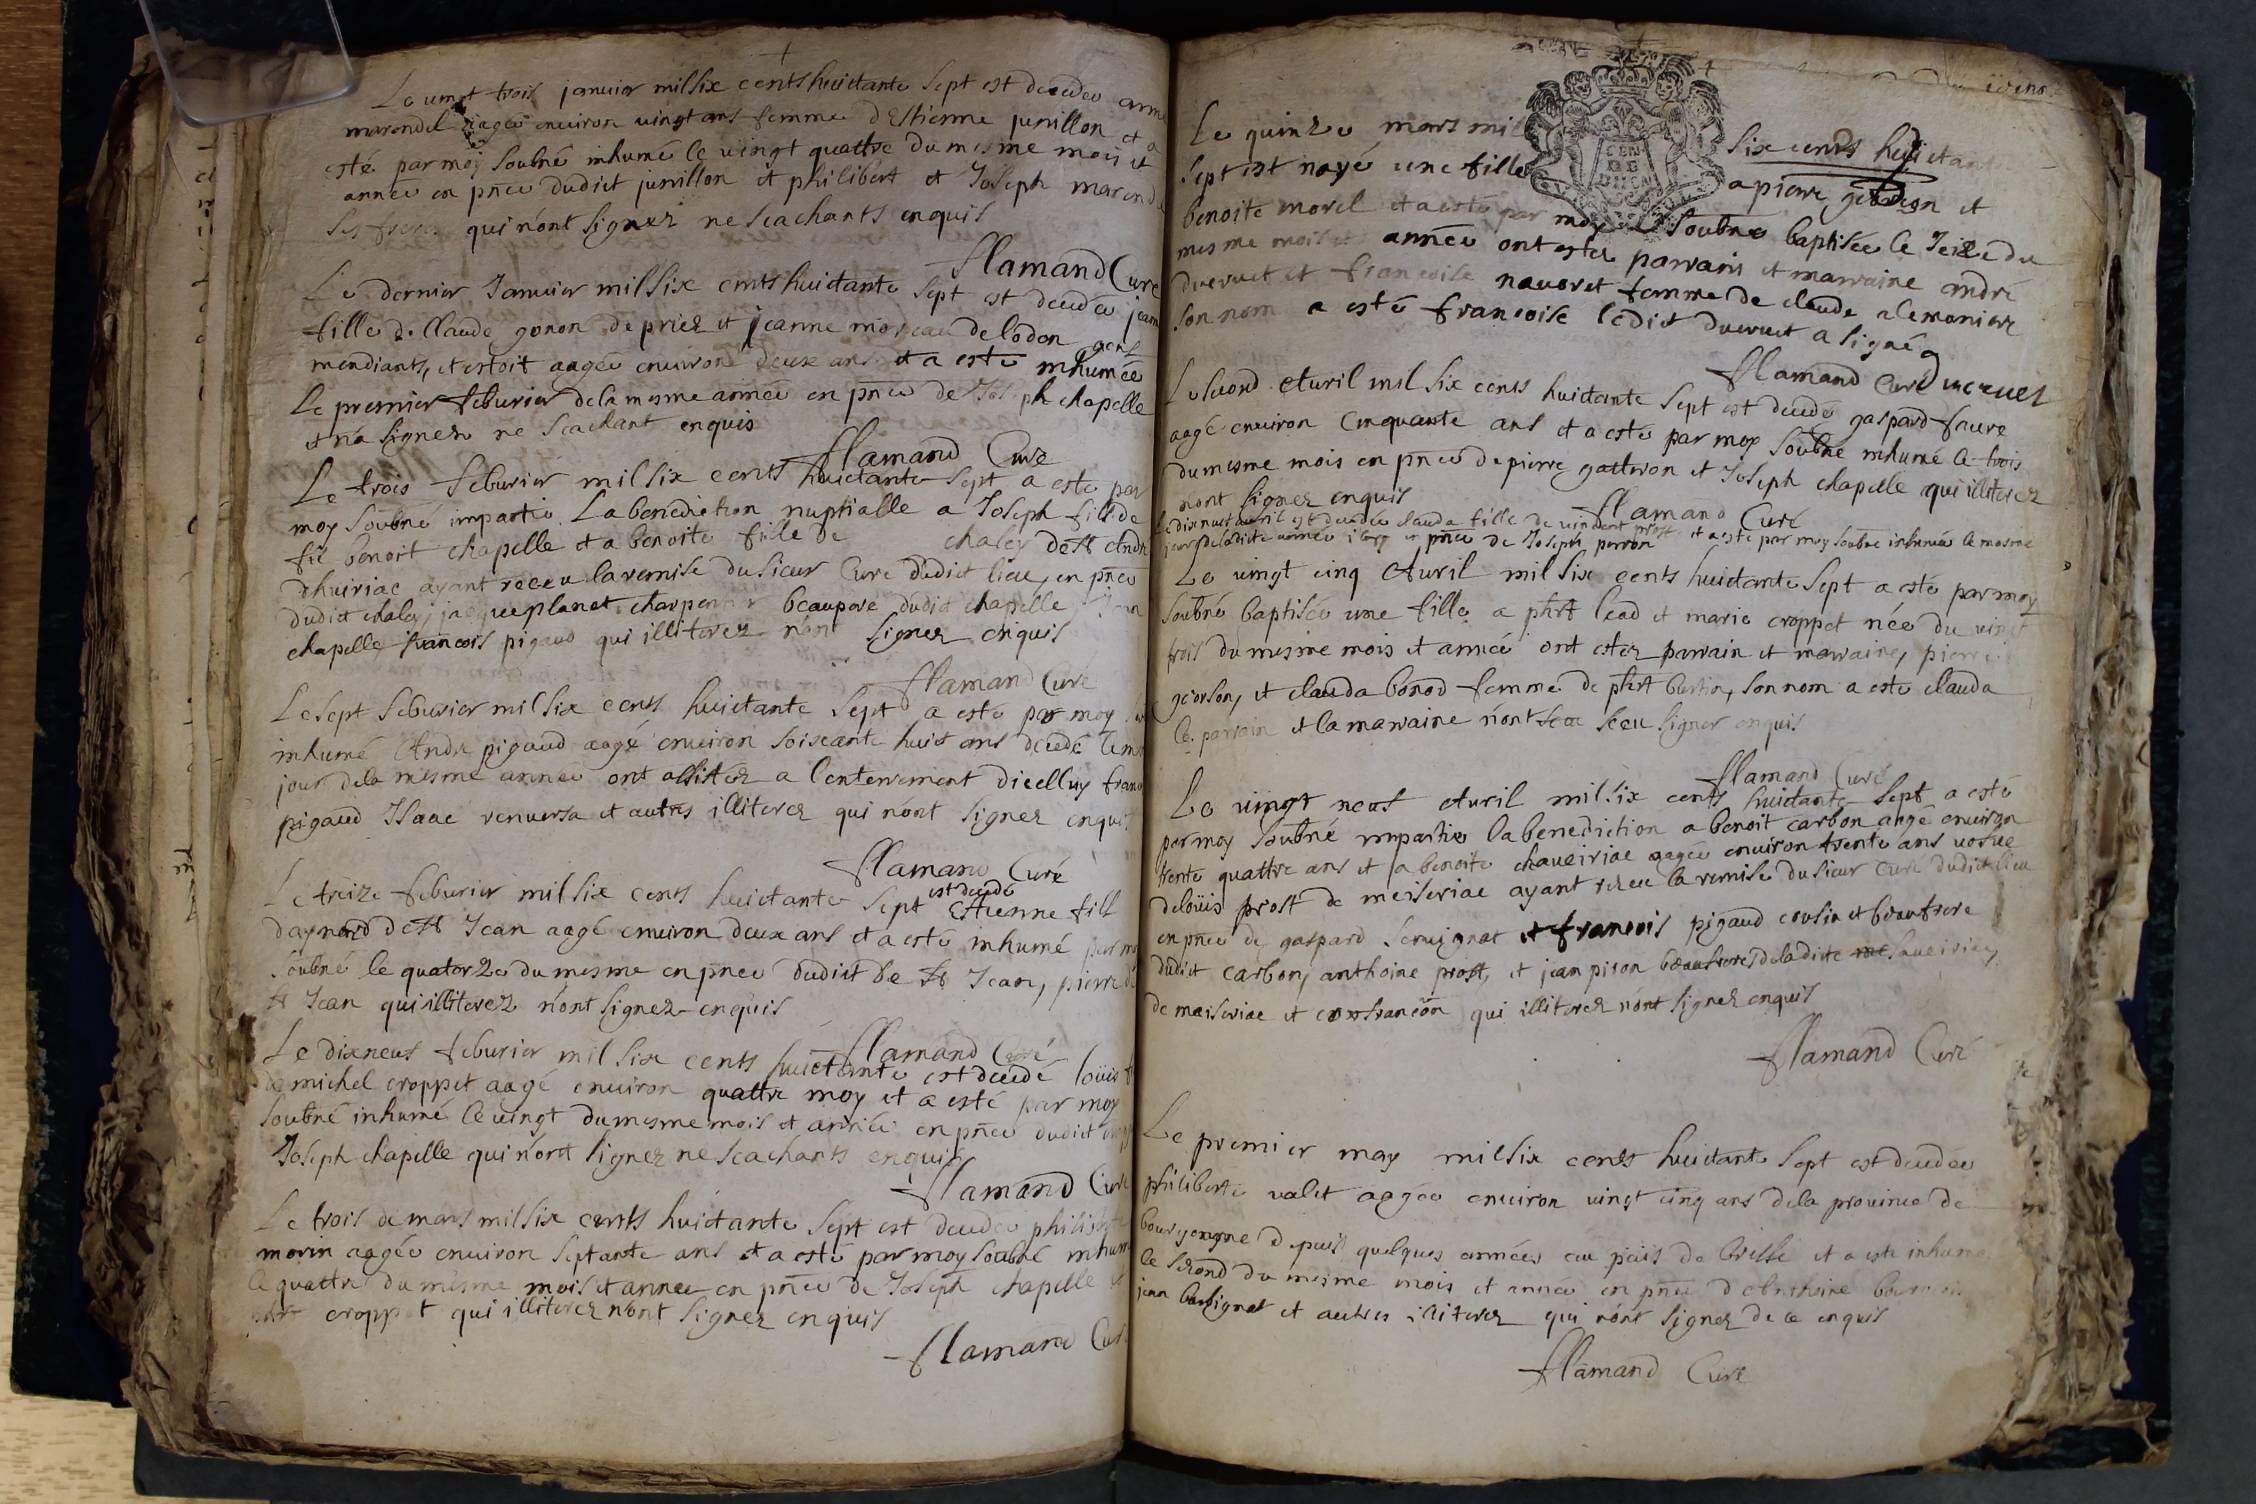 Le vingt trois janvier mil six cents huictante sept est decedee anne
marendel aagee environ vingt ans femme d'Estienne junillon et a
esté par moy soubné inhumé le vingt quattre du mesme mois et
annee en pñce dudict junillon et philibert et Joseph marende
ses freres qui n'ont signez ne scachants enquis
fflamand Curé
Le dernier Januier mil six cents huictante sept est decedée jean
fille de Claude gonon de priez et jeanne moreau de lodon gens
mendiants, et estoit aagee environ deux ans et a este inhumée
Le premier feburier de la mesme année en pñce de Joseph chapelle
et n'a signez ne scachant enquis
fflamand Curé
Le trois feburier mil six cents huictante sept a este par
moy soubné impartie La benediction nuptialle a Joseph fils de
fû benoit chapelle et a benoite fille de chaley de St Andr
dhuiriac ayant receu la remise du sieur Curé dudict lieu, en pñce
dudict chaley, jacque planet charpentier beaupere dudict chapelle
chapelle francois pigaud qui illiterez n'ont signez enquis
fflamand Curé
Le sept feburier mil six cents huictante sept a esté par moy
inhumé Andre pigaud aagé environ soixante huit ans decedé le me
jour de la mesme annee ont assistez a l'enterrement d'icelluy fran
pigaud Isaac renversa et autres illiterez qui n'ont signez enquis
fflamand Curé
Le treize feburier mil six cents huictante sept est decedé Estienne fill
daynard de St Jean aagé environ deux ans et a esté inhumé par moy
soubné le quatorze du mesme en pñce dudict de St Jean, pierre de
St Jean qui illiterez n'ont signez enquis
fflamand Curé
Le dixneuf feburier mil six cents huictante est decedé loüis
de michel croppet aagé environ quattre moy et a esté par moy
soubné inhumé le vingt du mesme mois et année en pñce dudict cropp
Joseph chapelle qui n'ont signez ne scachants enquis
fflamand Curé
Le trois de mars mil six cents huictante sept est decedee philiberte
morin aagée environ septante ans et a esté par moy soubné inhum
le quattre du mesme mois et annee en pñce de Joseph chapelle et
croppet qui illiterez n'ont signez enquis
fflamand Curé
Le quinze mars mil six cents huictante
sept est nayé une fille a pierre et
benoite morel et a esté par moy soubné baptisée le seize du
mesme mois et année ont estez parrain et marraine andré
ducruet et francoise naveret femme de claude
son nom a esté francoise ledict ducruet a signé
fflamand Curé Ducruet
Le second Auril mil six cents huictante sept est decedé gaspard faure
aagé environ Cinquante ans et a esté par moy soubné inhumé le trois
du mesme mois en pñce de pierre gatteron et Joseph chapelle qui illiterez
n'ont signez enquis
fflamand Curé
Le dixneuf auril est decedée claude fille de vincent prost et a esté par moy soubné inhumée le mesme
jour de ladicte année en pñce de Joseph perron
Le vingt cinq Auril mil six cents huictante sept a esté par moy
soubné baptisée une fille a phert lead et marie croppet née du vingt
trois du mesme mois et année ont estez parrain et marraine, pierre
georson, et clauda bonod femme de phert burtin, son nom a esté clauda
le parrain et la marraine n'ont sceu signer enquis
fflamand Curé
Le vingt neuf Auril mil six cents huictante sept a esté
par moy soubné impartie la benediction a benoit carbon aagé environ
trente quattre ans et a benoite chaveiriac aagée environ trente ans vefve
de loüis prost de meiseriac ayant receu la remise du sieur Curé dudict lieu
en pñce de gaspard seruignat et francois pigaud cousin et beaufrere
dudict carbon, anthoine prost, et jean piron beaufreres de ladicte chaveiriac
de maiseriac et confrançon qui illiterez n'ont signez enquis
fflamand Curé
Le premier may mil six cents huictante sept est decedee
philiberte valet aagée environ vingt cinq ans de la province de
bourgongne depuis quelques années au païs de bresse et a esté inhumé
le second du mesme mois et année en pñce d'Anthoine
jean et autres illiterez qui n'ont signez de ce enquis
fflamand Curé